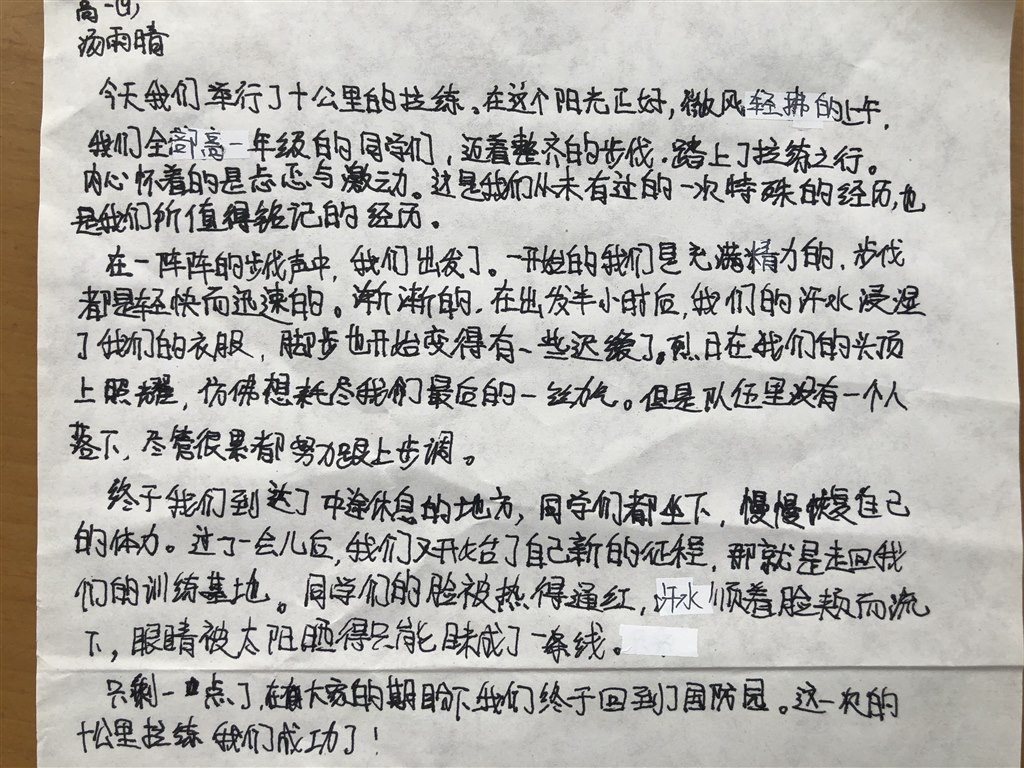 高一(9)
汤雨晴
今天我们举行了十公里的拉练。在这个阳光正好,微风轻拂的上午,
我们全部高一年级的同学们,迈着整齐的步伐.踏上了拉练之行。
内心怀着的是忐忑与激动。这是我们从未有过的一次特殊的经历,也
是我们所值得铭记的经历。
在一阵阵的步伐声中,我们出发了。一开始的我们是充满精力的,步伐
都是轻快而迅速的。渐渐的.在出发半小时后,我们的汗水浸湿
了我们的衣服,脚步也开始变得有一些迟缓了。烈日在我们的头顶
上照耀,仿佛想耗尽我们最后的一丝力气。但是队伍里没有一个人
落下,尽管很累都努力跟上步调。
终于我们到达了中途休息的地方,同学们都坐下,慢慢恢复自己
的体力。过了一会儿后,我们又开始了自己新的征程,那就是走回我
们的训练基地。同学们的脸被热得通红,汗水顺着脸颊而流
下,眼睛被太阳晒得只能眯成了一条线。
只剩一点了,在大家的期盼下我们终于回到了国防园。这一次的
十公里拉练我们成功了!